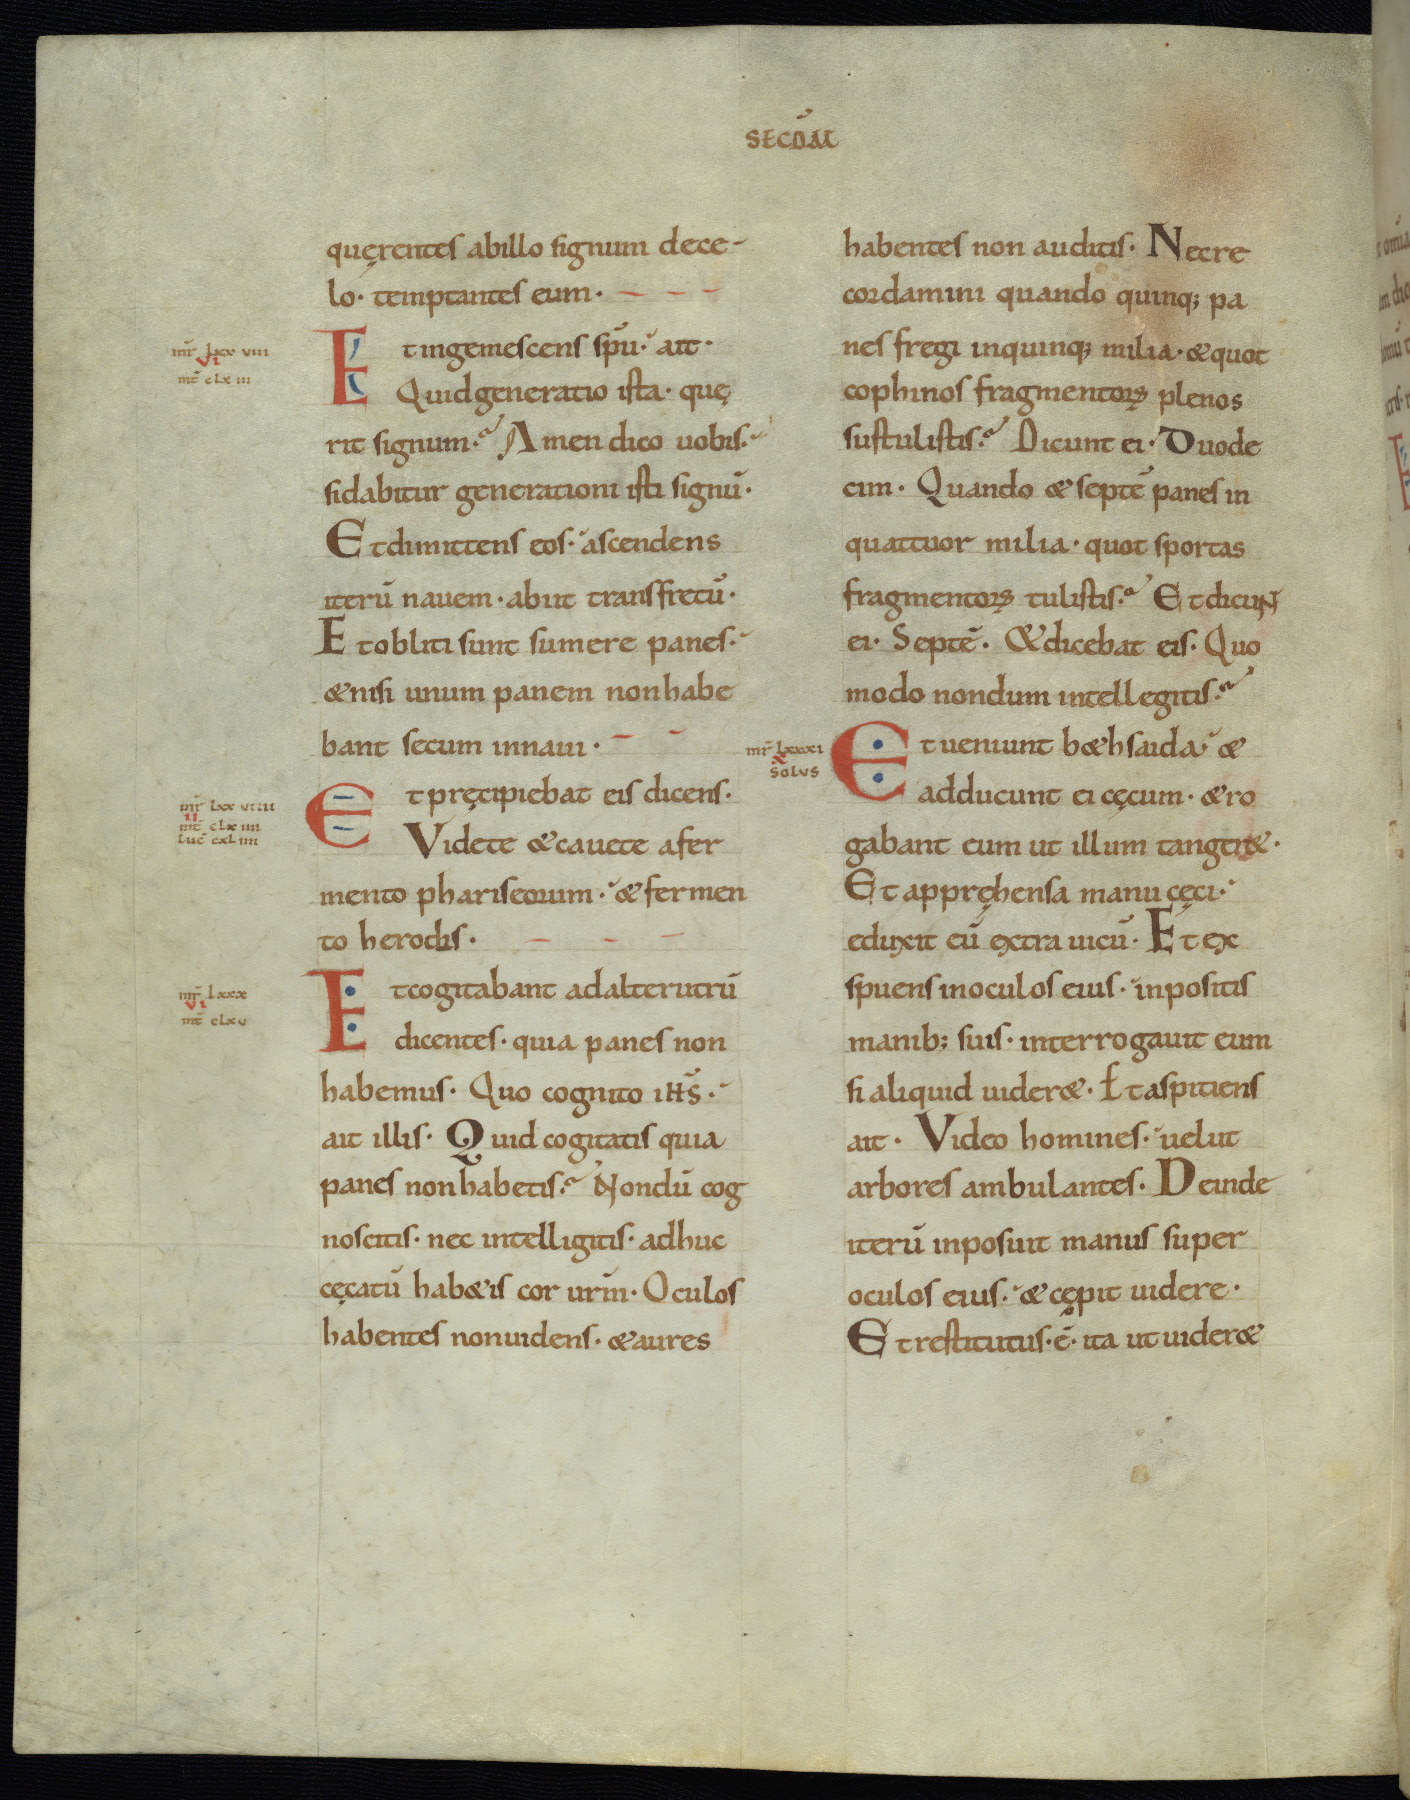 SECD̄M
quęrentes abillo signum dece-
lo· temptantes eum·
mr̄ lxxviii
vi
mt̄ clxiii
Et ingemescens sp̄u· ait·
Quid generatio ista· quę
rit signum· Amen dico uobis·
si dabitur generationi isti signū·
Et dimittens eos· ascendens
iterū nauem· abiit transfretū·
Et obliti sunt sumere panes·
& nisi unum panem non habe
bant secum in naui·
mr̄ lxxviiii
ii
mt̄ clxiiii
luc̄ cxliiii
Et pręcipiebat eis dicens·
Videte & cauete a fer
mento phariseorum· & fermen
to herodis·
mr̄ lxxx
vi
mt̄ clxv
Et cogitabant ad alterutrū
dicentes· quia panes non
habemus· Quo cognito ih̄s·
ait illis· Quid cogitatis quia
panes non habetis· Nondū cog
noscitis· nec intelligitis· adhuc
cęcatū hab&is cor ur̄m· Oculos
habentes non uidens· & aures
habentes non auditis· Nec re
cordamini quando quinq; pa
nes fregi in quinq; milia· & quot
cophinos fragmentoꝝ plenos
sustulistis· Dicunt ei· Duode
cim· Quando & septē panes in
quattuor milia· quot sportas
fragmentoꝝ tulistis· Et dicunt
ei· Septē· & dicebat eis· Quo
modo nondum intellegitis·
mr̄ lxxxi
x
solus
Et ueniunt b&hsaida· &
adducunt ei cęcum· & ro
gabant eum ut illum tanger&·
Et appręhensa manu cęci·
eduxit eū extra uicū· Et ex
spuens in oculos eius· inpositis
manib; suis· interrogauit eum
si aliquid uider&· Et aspitiens
ait· Video homines· uelut
arbores ambulantes· Deinde
iterū inposuit manus super
oculos eius· & cępit uidere·
Et restitutus· ē· ita ut uider&